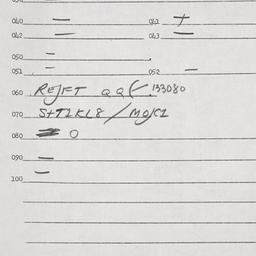 040 — 041 +
042 — 043 —
050 —
051 — 052 —
060 REJFT QQ(/.133080
070 S+T1KL8 / MOJC1
080 0
090 —
—
100